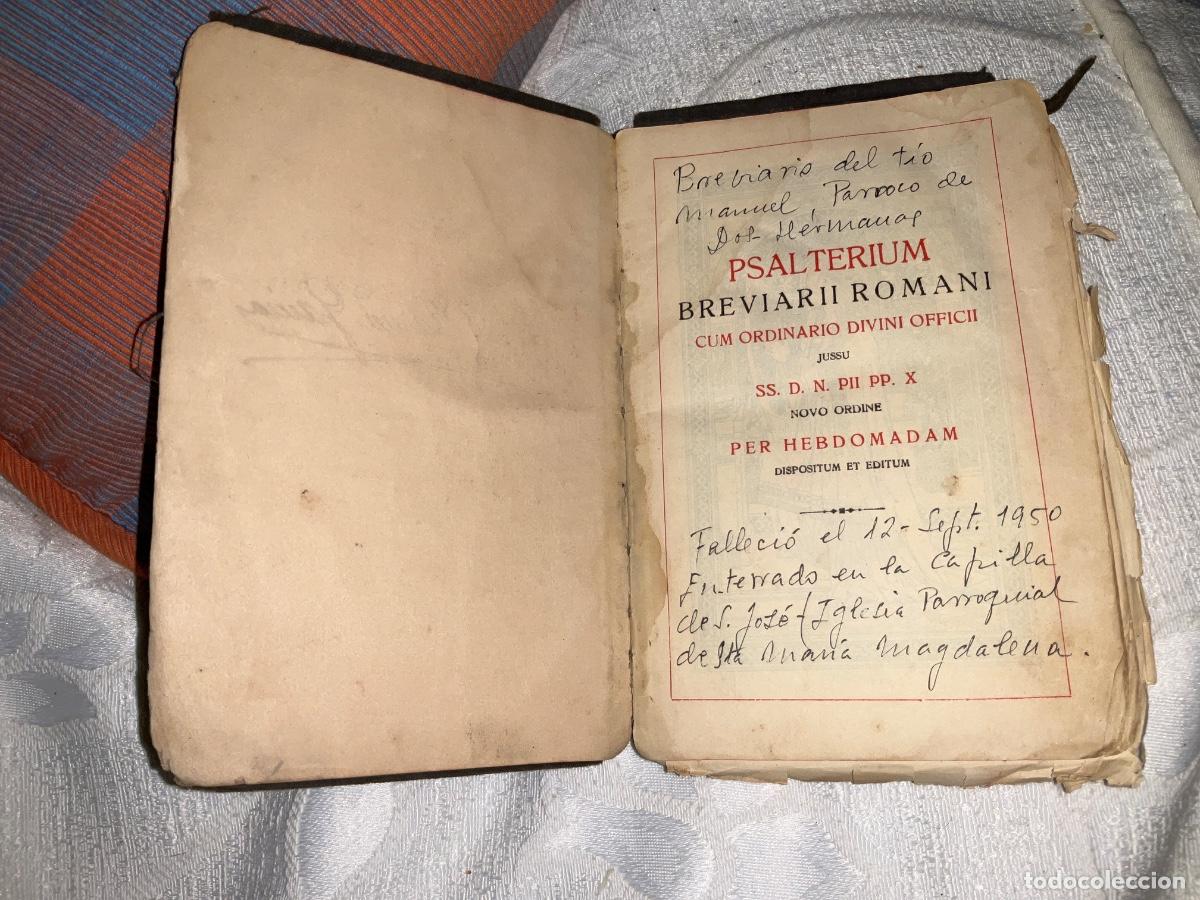 Breviario del tío
Manuel, Parroco de
Dos-Hermanas
PSALTERIUM
BREVIARII ROMANI
CUM ORDINARIO DIVINI OFFICII
JUSSU
SS. D. N. PII PP. X
NOVO ORDINE
PER HEBDOMADAM
DISPOSITUM ET EDITUM
Falleció el 12-Sept. 1950
Enterrado en la Capilla
de S. José-(Iglesia Parroquial
de Sta María Magdalena.
todocoleccion